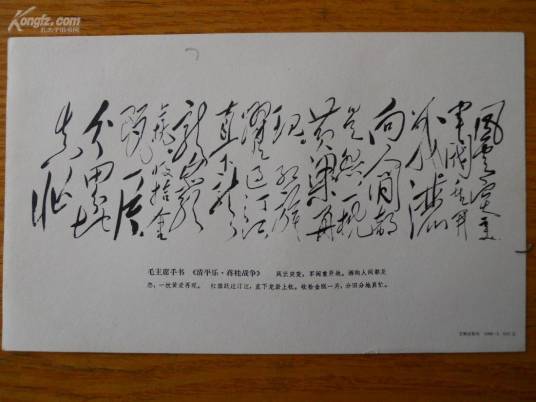 Kongfz.com
孔夫子旧书网
風雲突變
軍閥重開
戰灑
向人間都
是怨一枕
黃粱再
現紅旗
躍過汀江
直下龍
岩上杭
收拾金
甌一片
分田分地
真忙
毛主席手书 《清平乐·蒋桂战争》 风云突变,军阀重开战。洒向人间都是
怨,一枕黄粱再现。 红旗跃过汀江,直下龙岩上杭。收拾金瓯一片,分田分地真忙。